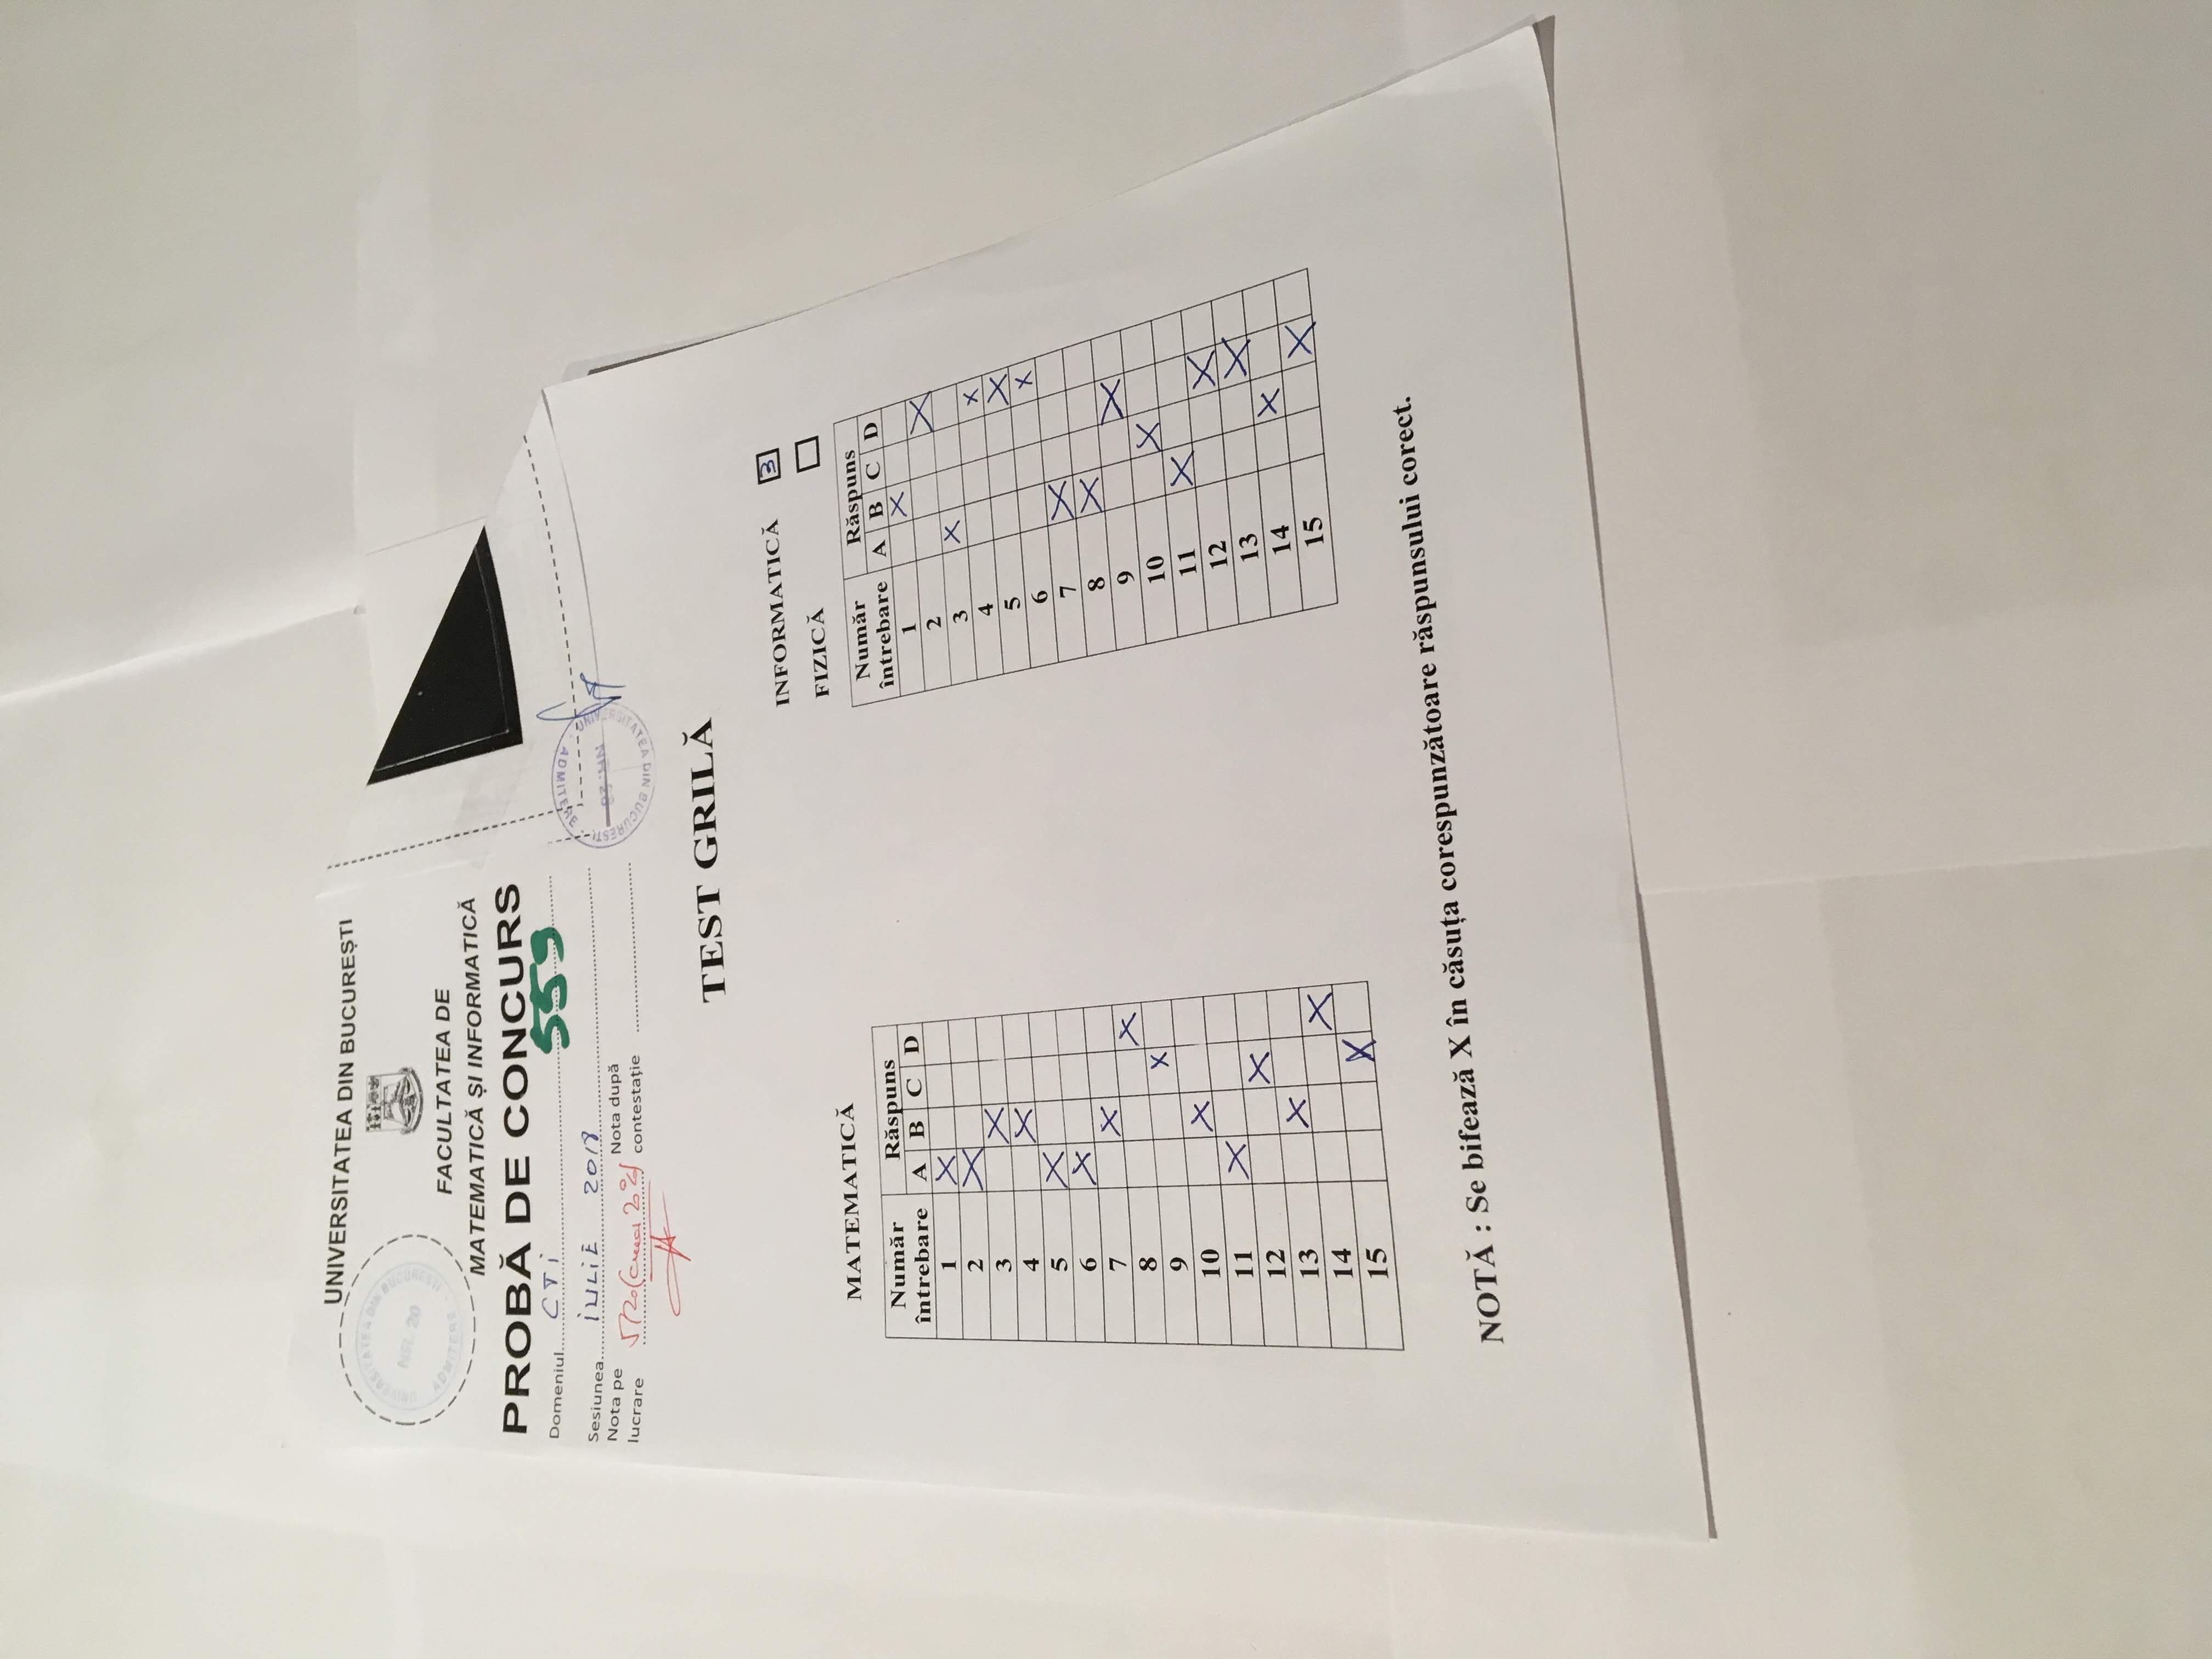 UNIVERSITATEA DIN BUCUREȘTI
UNIVERSITATEA DIN BUCUREȘTI
NR. 20
ADMITERE
FACULTATEA DE
MATEMATICĂ ȘI INFORMATICĂ
PROBĂ DE CONCURS
Domeniul CTi 559
Sesiunea iULiE 2018
Nota pe lucrare 5,20 (cinci 20%)
Nota după contestație
UNIVERSITATEA DIN BUCUREȘTI
NR. 20
ADMITERE
TEST GRILĂ
MATEMATICĂ
Număr întrebare Răspuns
A B C D
1 X
2 X
3 X
4 X
5 X
6 X
7 X
8 X
9 X
10 X
11 X
12 X
13 X
14 X
15 X
INFORMATICĂ 3
FIZICĂ
Număr întrebare Răspuns
A B C D
1 X
2 X
3 X
4 X
5 X
6 X
7 X
8 X
9 X
10 X
11 X
12 X
13 X
14 X
15 X
NOTĂ : Se bifează X în căsuța corespunzătoare răspunsului corect.